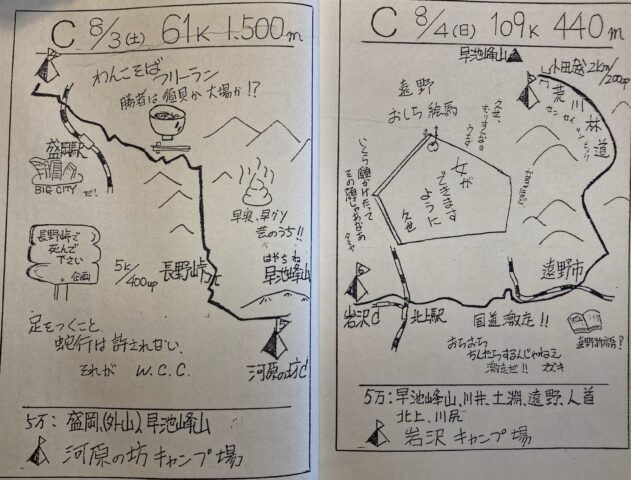 C 8/3(土) 61K 1,500m
わんこそば
フリーラン
勝者は飯貝か大場か!?
盛岡駅
BIG CITY
だ!
早寝、早グソ
芸のうち!!
長野峠で
死んで
下さい
企画
5K/400up
長野峠
はやちね
早池峰山
足をつくこと
蛇行は許されない.
それが W.C.C.
河原の坊C
5万: 盛岡、(外山)、早池峰山
河原の坊キャンプ場
C 8/4(日) 109K 440m
早池峰山
小田越
2km/200up
荒川林道
遠野
おしら絵馬
女が
できます
ように
久也
いくら鐘かけたって
その顔じゃあなあ
岩沢C
北上駅
国道激走!!
遠野市
遠野物語?
激走ゼ!! カズキ
5万: 早池峰山、川井、土淵、遠野、人首
北上、川尻
岩沢キャンプ場